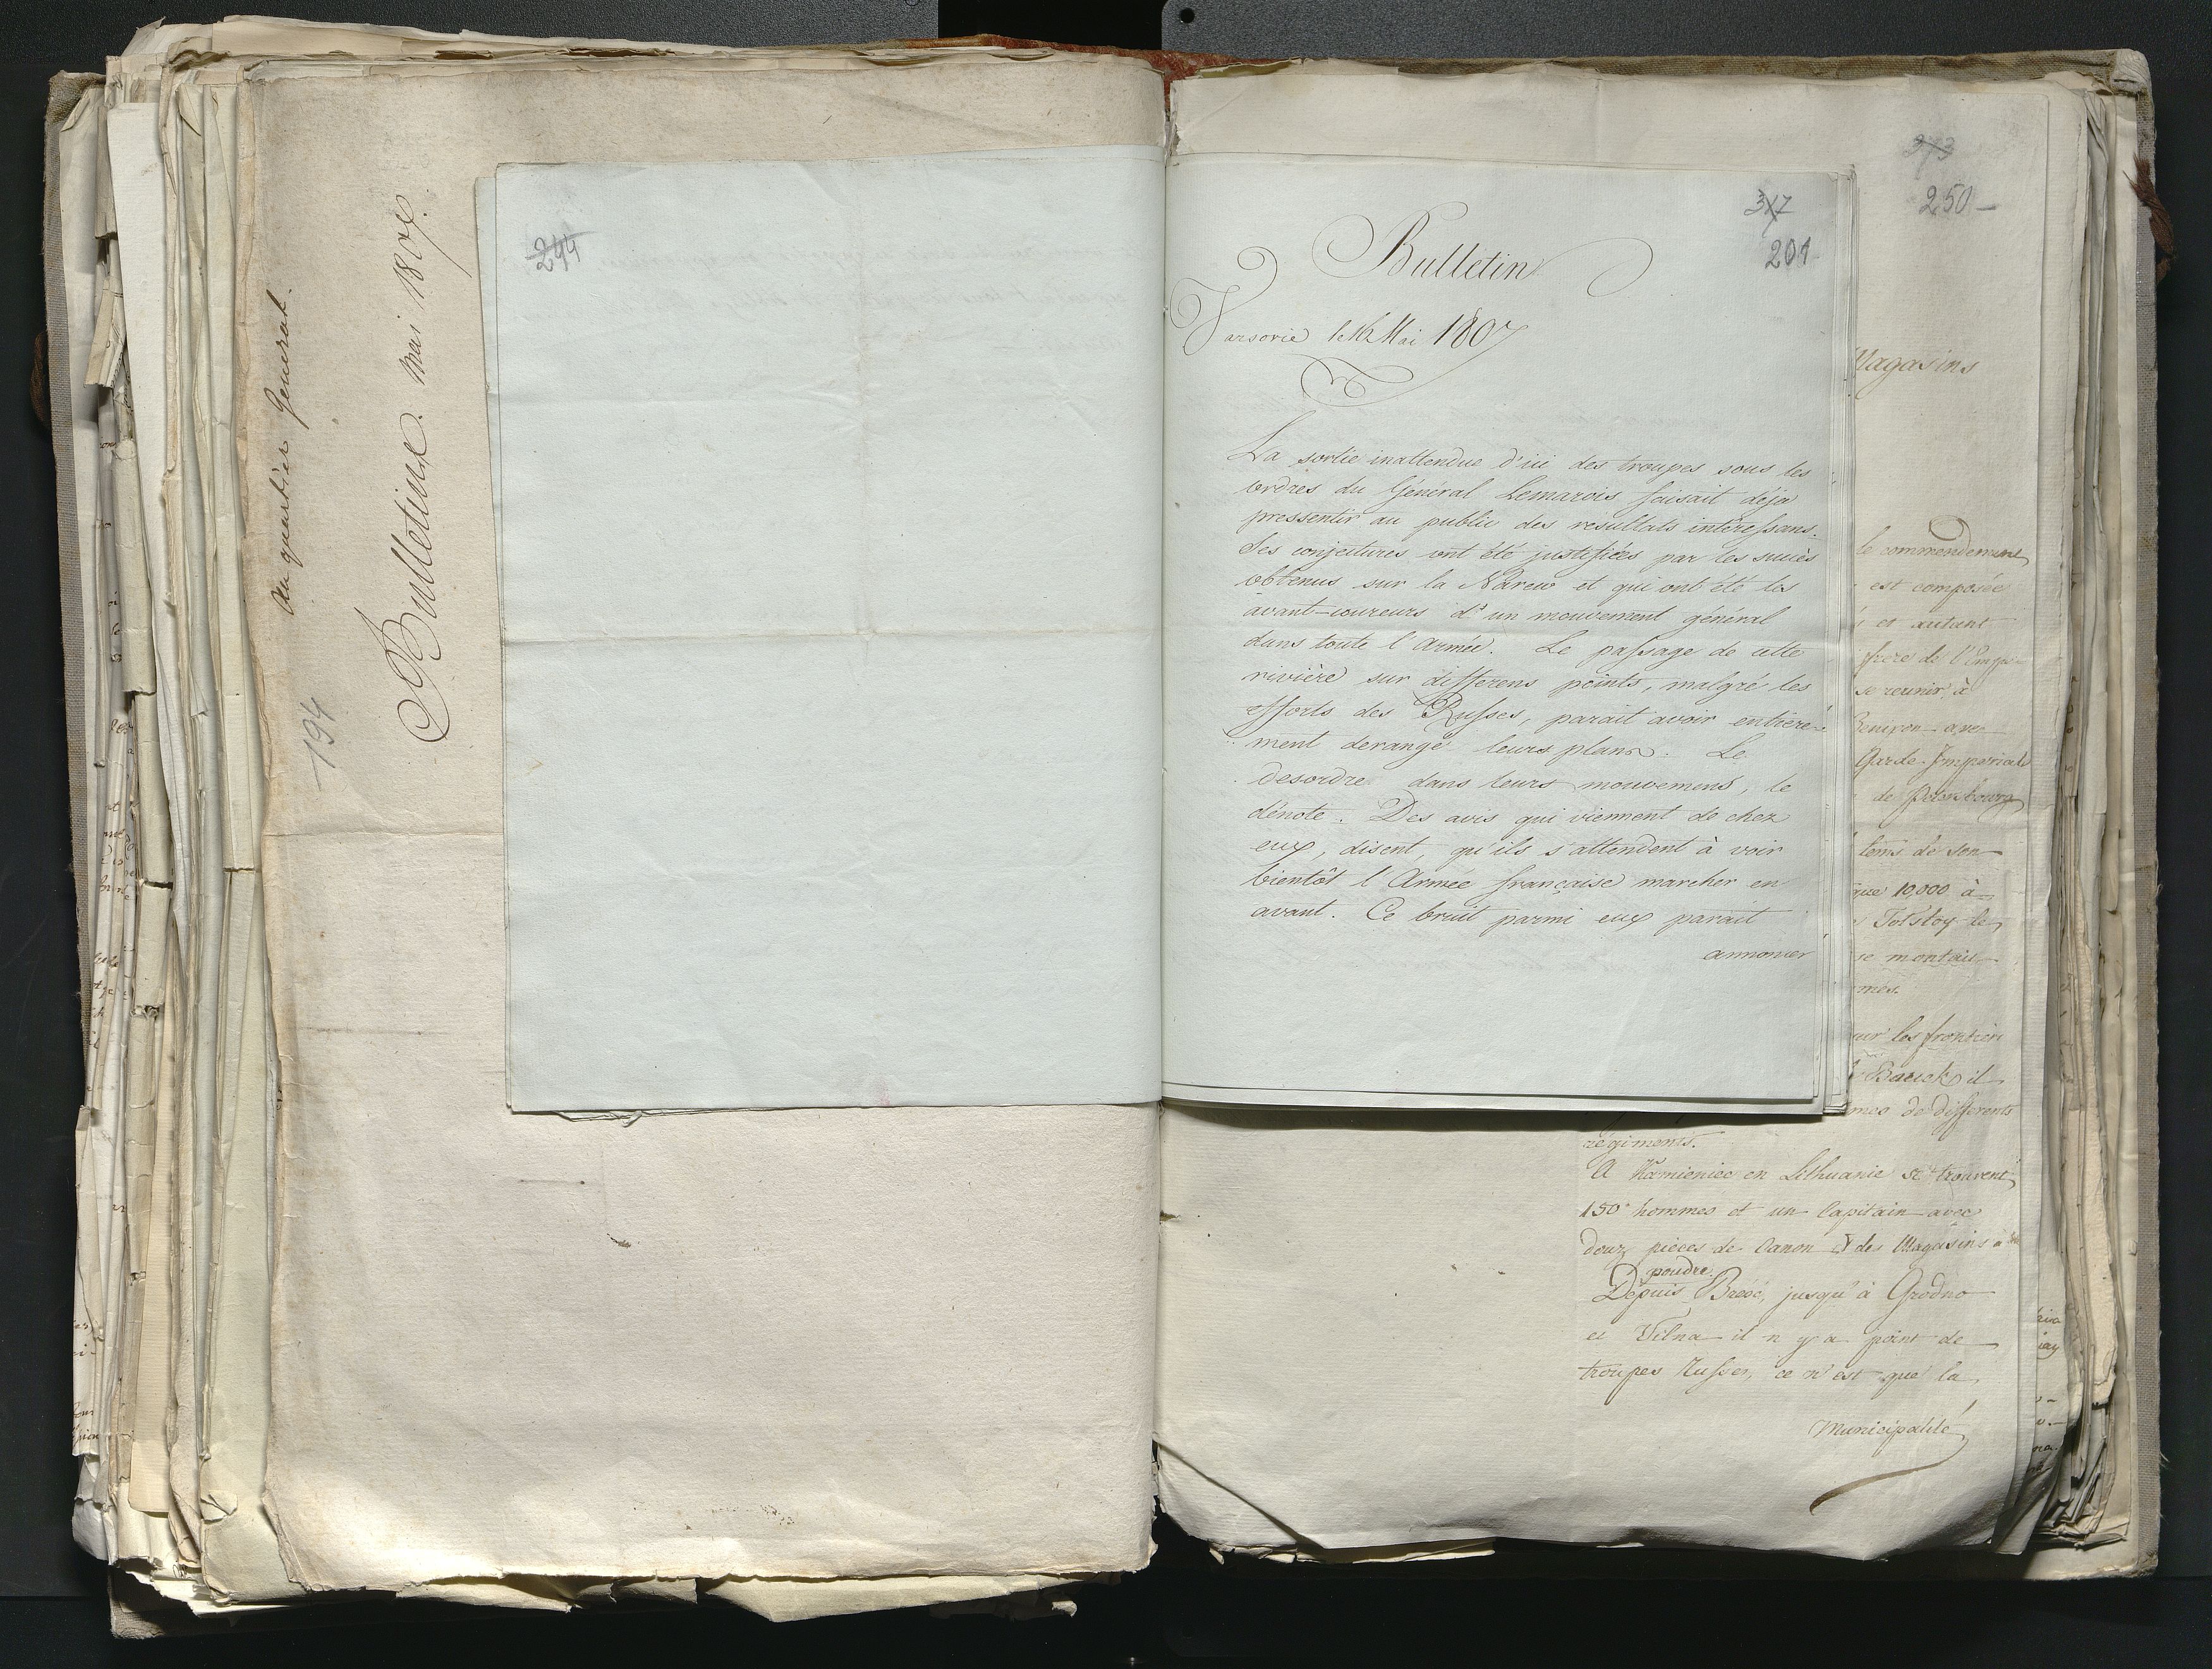 Au quartier General.
Bulletins. Mai 1807.
194
244
317
201
Bulletin
Varsovie le 16 Mai 1807
La sortie inattendue d'ici des troupes sous les
ordres du Général Lemarois faisait déja
pressentir au public des résultats intéressans.
Ses conjectures ont été justifiées par les succès
obtenus sur la Narew et qui ont été les
avant-coureurs d'un mouvement général
dans toute l'Armée. Le passage de cette
rivière sur differens points, malgré les
efforts des Russes, parait avoir entière-
ment derangé leurs plans. Le
desordre dans leurs mouvemens, le
dénote. Des avis qui viennent de chez
eux, disent, qu'ils s'attendent à voir
bientôt l'Armée française marcher en
avant. Ce bruit parmi eux parait
annoncer
273
250
Magasins
le commendement
est composée
et autant
frere de l'Empe-
se reunir à
Benixon avec
Garde Imperiale
de Petersbourg
tems de son
que 10,000 à
Tolstoy le
se montait
mes.
sur les frontieri
il
mes de differents
régiments.
A Kamieniec en Lithuanie se trouvent
150 hommes et un Capitain avec
douz pieces de Canon & des Magasins à
poudre.
Depuis Bresc, jusqu'à Grodno
et Vilna il n'y a point de
troupes Russes, ce n'est que la
Municipalité